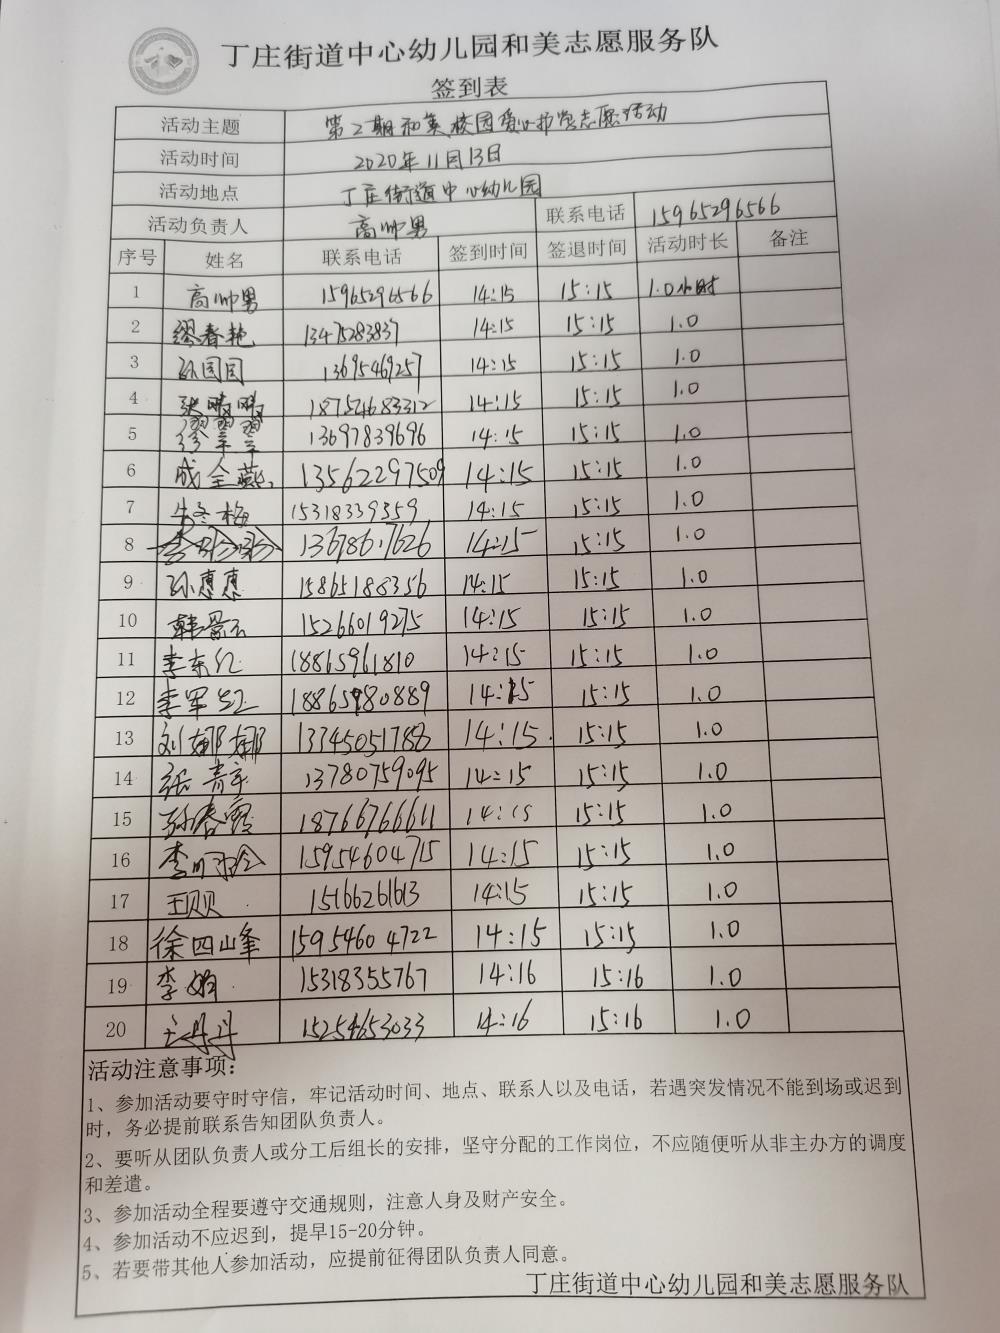 丁庄街道中心幼儿园和美志愿服务队
签到表
活动主题 第2期和美校园爱心护学志愿活动
活动时间 2020年11月13日
活动地点 丁庄街道中心幼儿园
活动负责人 高帅男 联系电话 15965296566
序号 姓名 联系电话 签到时间 签退时间 活动时长 备注
1 高帅男 15965296566 14:15 15:15 1.0小时
2 缪春艳 13475283837 14:15 15:15 1.0
3 孙园园 13695469257 14:15 15:15 1.0
4 张晴晴 18754683312 14:15 15:15 1.0
5 缪翠翠 13697839696 14:15 15:15 1.0
6 成全燕 13562297509 14:15 15:15 1.0
7 牛冬梅 15318339559 14:15 15:15 1.0
8 李玲玲 13678617626 14:15 15:15 1.0
9 孙惠惠 15865188356 14:15 15:15 1.0
10 韩景云 15266019275 14:15 15:15 1.0
11 李东红 18865961810 14:15 15:15 1.0
12 李军红 18865980889 14:15 15:15 1.0
13 刘娜娜 13345051788 14:15 15:15 1.0
14 张青 13780759095 14:15 15:15 1.0
15 孙春霞 18766766611 14:15 15:15 1.0
16 李 15954604715 14:15 15:15 1.0
17 王贝贝 15166261613 14:15 15:15 1.0
18 徐四峰 15954604722 14:15 15:15 1.0
19 李娟 15318355767 14:16 15:16 1.0
20 王丹丹 15254653033 14:16 15:16 1.0
活动注意事项：
1、参加活动要守时守信，牢记活动时间、地点、联系人以及电话，若遇突发情况不能到场或迟到
时，务必提前联系告知团队负责人。
2、要听从团队负责人或分工后组长的安排，坚守分配的工作岗位，不应随便听从非主办方的调度
和差遣。
3、参加活动全程要遵守交通规则，注意人身及财产安全。
4、参加活动不应迟到，提早15-20分钟。
5、若要带其他人参加活动，应提前征得团队负责人同意。
丁庄街道中心幼儿园和美志愿服务队